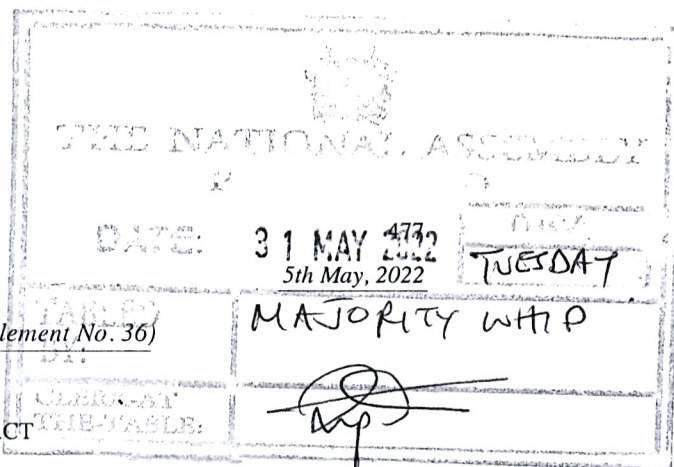 THE NATIONAL ASSEMBLY
P S
DATE: 31 MAY 2022 DAY
477
5th May, 2022 TUESDAY
TABLED BY: MAJORITY WHIP
lement No. 36)
CLERK-AT
THE-TABLE:
ACT